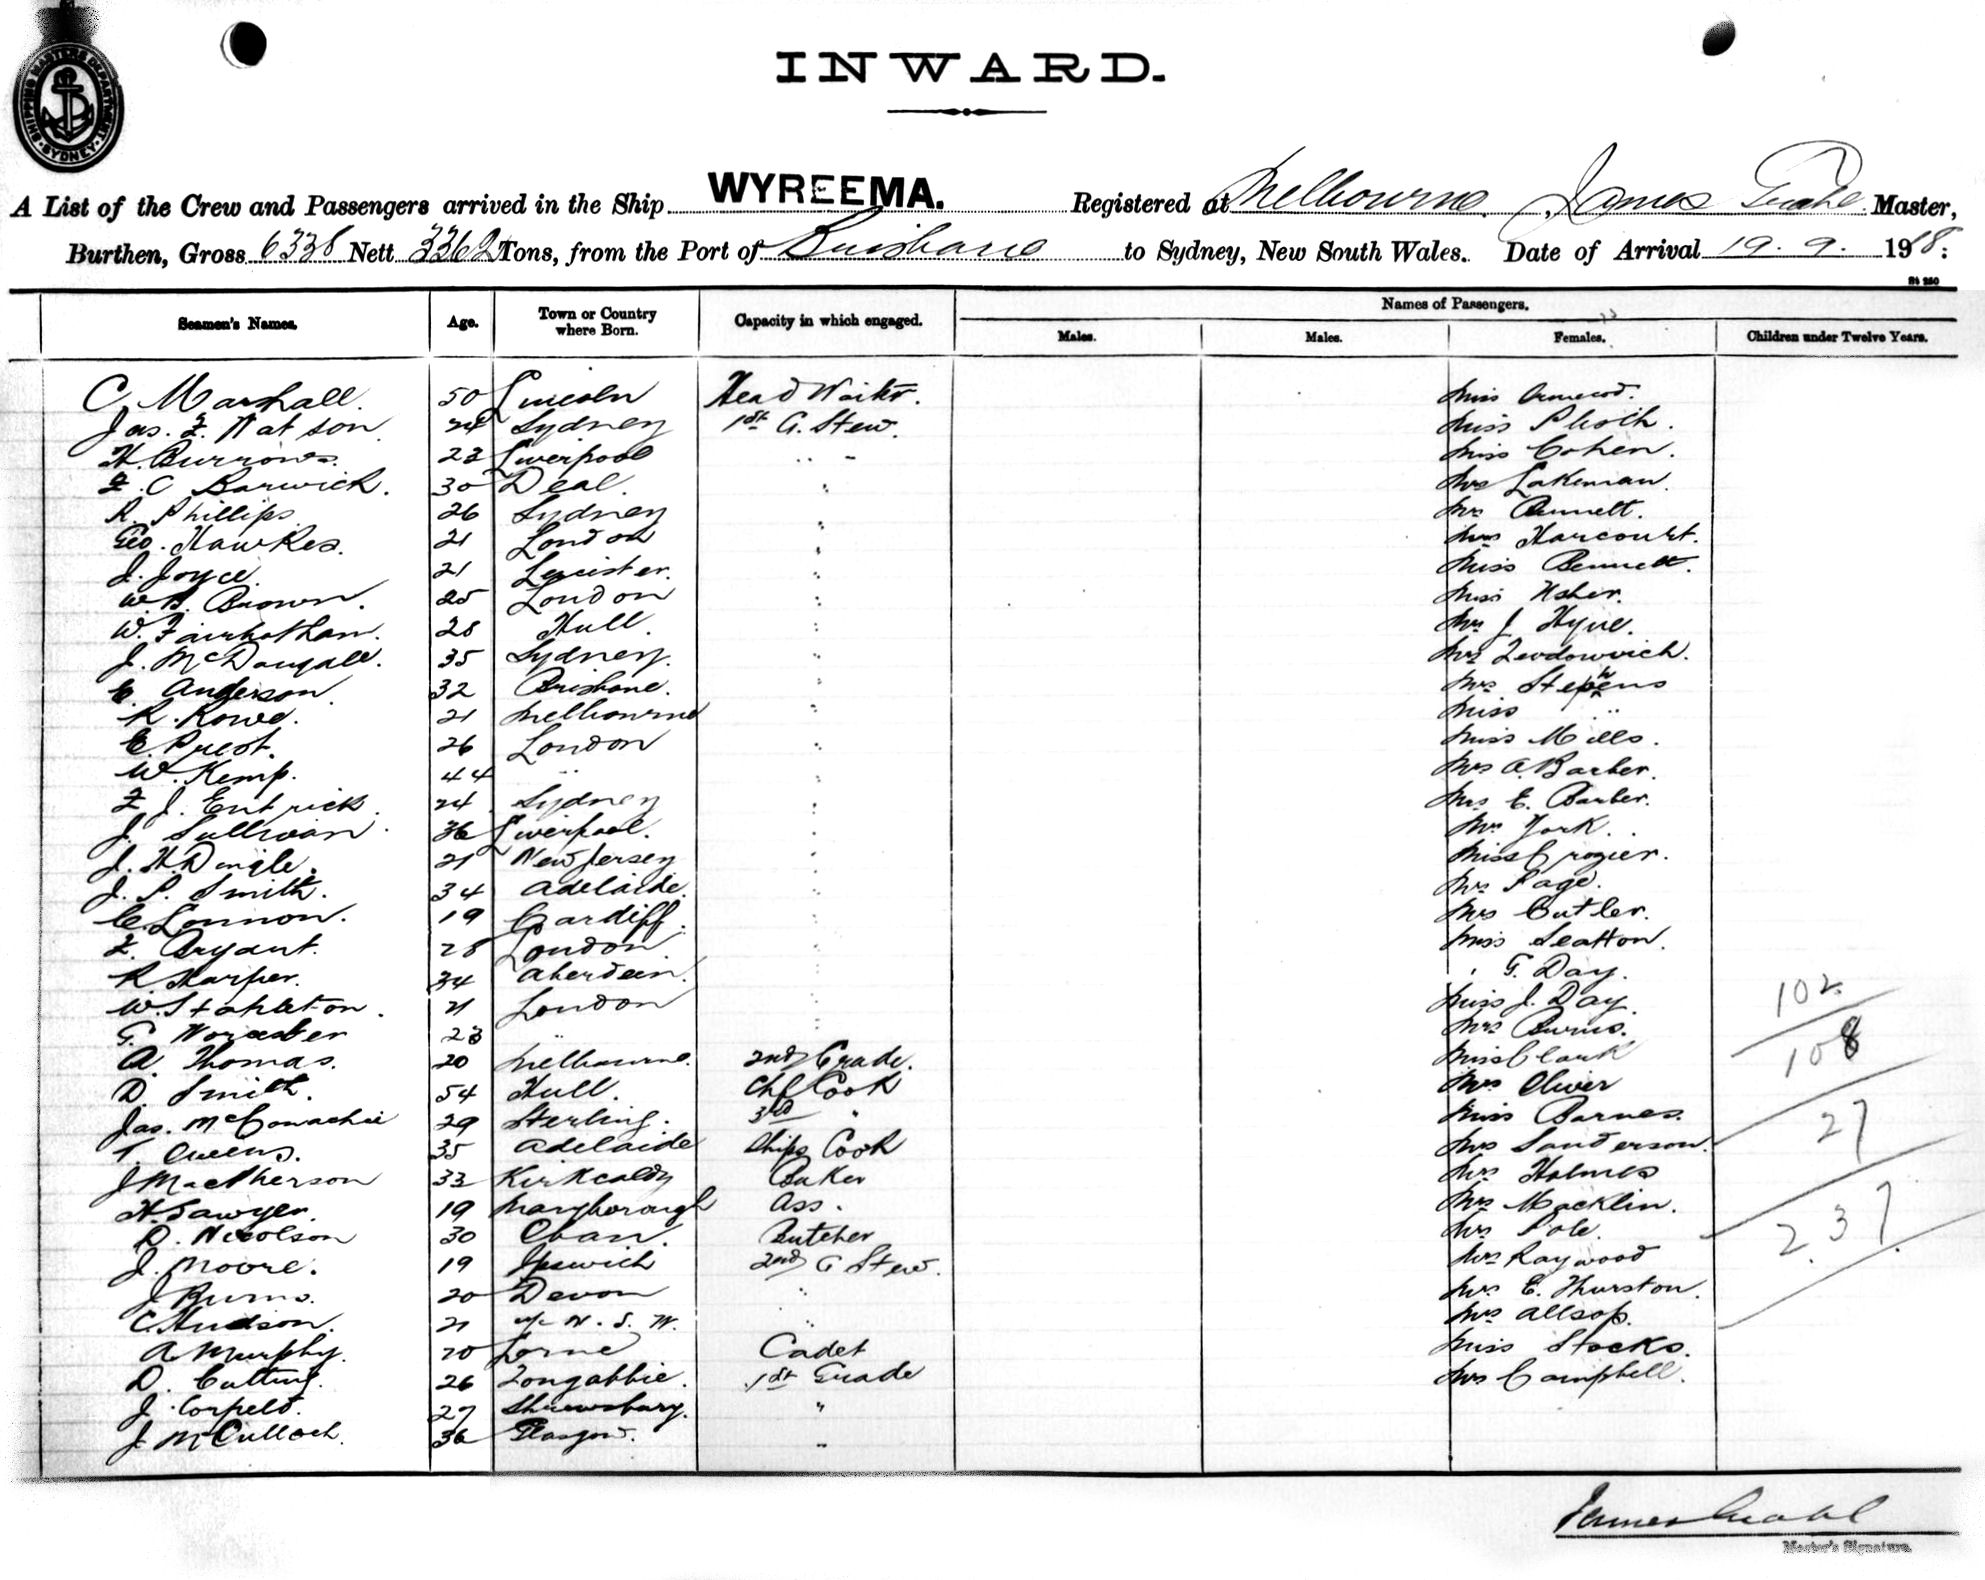 SHIPPING MASTERS DEPARTMENT. SYDNEY
INWARD.
A List of the Crew and Passengers arrived in the Ship WYREEMA. Registered at Melbourne James Master,
Burthen, Gross 6338 Nett 3362 Tons, from the Port of Brisbane to Sydney, New South Wales. Date of Arrival 19.9.1918:
St 250
Names of Passengers.
Seamen's Names. Age. Town or Country where Born. Capacity in which engaged. Males. Males. Females. Children under Twelve Years.
C Marshall. 50 Lincoln Head Waiter. Miss Ormerod.
Jas. F. Watson 24 Sydney 1st G. Stew. Miss
H. Burrows. 23 Liverpool " " Miss Cohen.
F. C Barwick. 30 Deal. " Mrs Lakeman.
R. Phillips 26 Sydney " Mrs Bennett.
Geo. Hawkes. 21 London " Mrs Harcourt.
J. Joyce. 21 Leicister. " Miss Bennett.
W. H. Brown. 25 London " Miss Usher.
W. Fairbotham. 28 Hull. " Mrs J Hyne.
J. McDougall. 35 Sydney. " Mrs
E. Anderson. 32 Brisbane. " Mrs Stephens
R. Rowe. 21 Melbourne " Miss "
E. Prest. 26 London " Miss Mills.
W. Kemp. 44 " " Mrs A. Barber.
F. J. Entrick. 24 Sydney " Mrs E. Barber.
J. Sullivan 36 Liverpool. " Mrs York.
J. H. Dingle. 21 New Jersey " Miss Crozier.
J. P. Smith. 34 Adelaide. " Mrs Page.
C. Lonnon. 19 Cardiff. " Mrs Cutler.
F. Bryant. 28 London " Miss Seatton.
R Harper. 34 Aberdeen. " " G. Day.
W. Stapleton. 21 London " Miss J. Day.
G. Worcester 23 " " Mrs Burns.
A. Thomas. 20 Melbourne. 2nd Grade. Miss Clark
D. Smith. 54 Hull. Chf Cook Mrs Oliver
Jas. McConachie 29 Sterling. 3rd " Miss Barnes.
T. Owens. 35 Adelaide Ships Cook Mrs Sanderson.
J MacPherson 33 Kirkcaldy Baker Mrs Holmes
H. Sawyer. 19 Maryborough Ass. Mrs Macklin.
D. Nicolson 30 Oban. Butcher Mrs Pole.
J. Moore. 19 Ipswich 2nd G Stew. Mrs Raywood
J Burns. 20 Devon " Mrs E. Thurston.
C. Hudson. 21 N. S. W. " Mrs Allsop.
A. Murphy. 20 Lorne Cadet Miss Stocks.
D. Cutting. 26 Tongabbie. 1st Grade Mrs Campbell.
J. Corfield. 27 Shrewsbury. "
J. McCulloch. 36 Glasgow. "
102
108
27
237
James
Master's Signature.